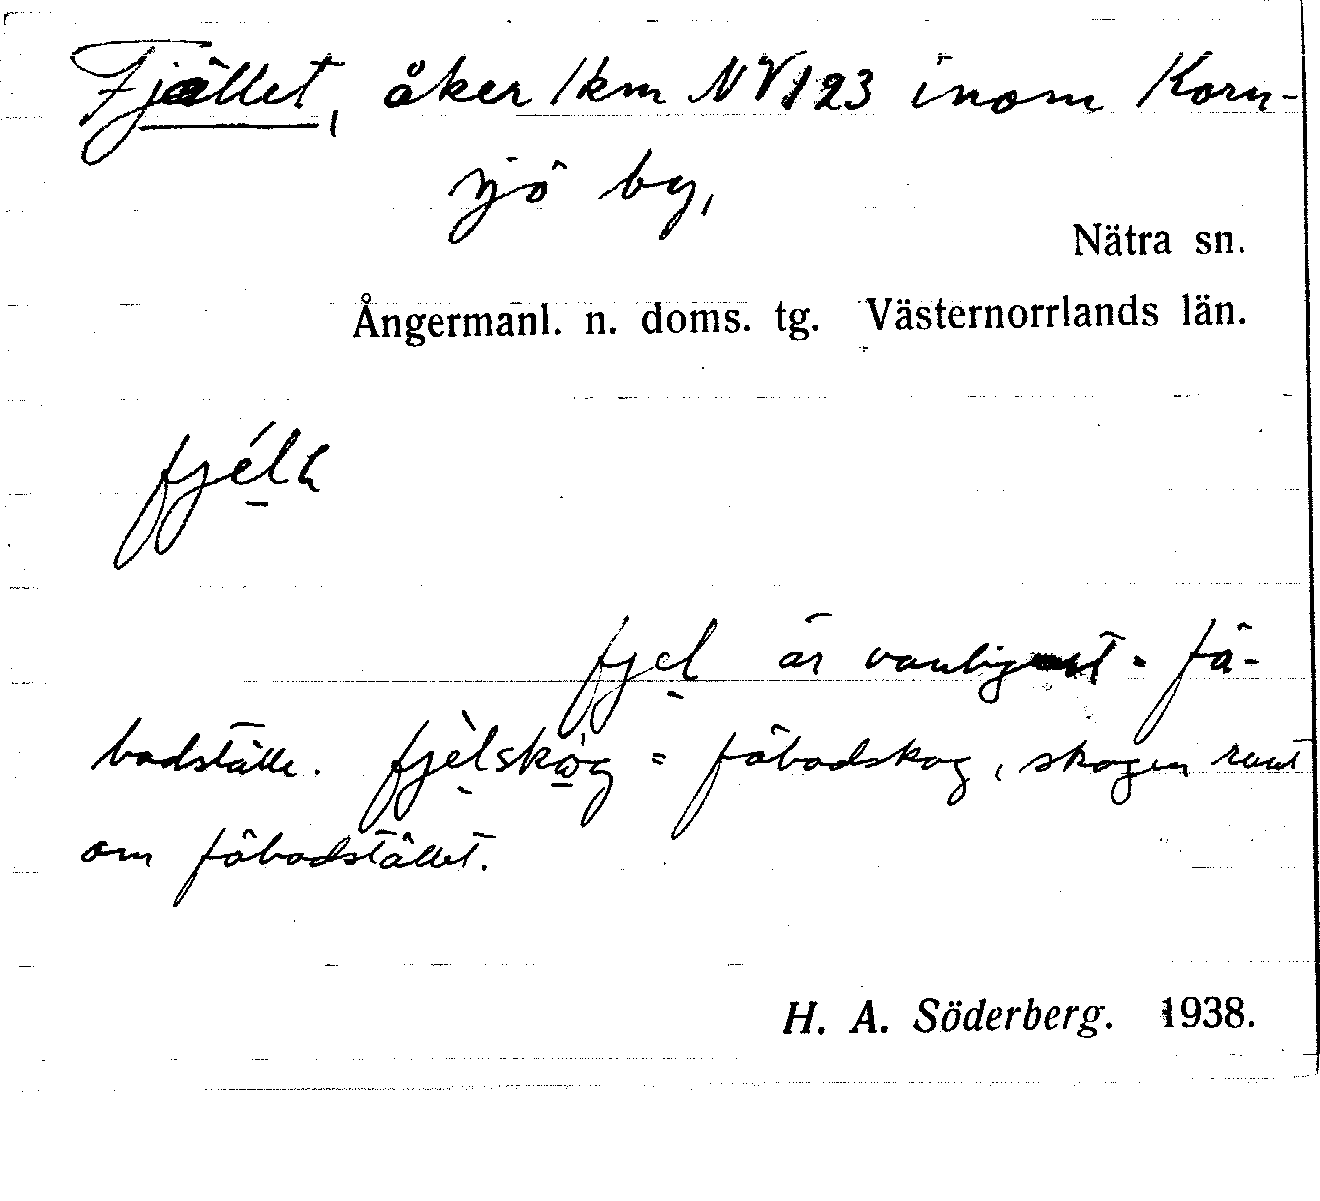 Fjället, åker 1 km NV 123 inom Korn-
sjö by,
Nätra sn.
Ångermanl. n. doms. tg. Västernorrlands län.
fjélɐ
fjel är vanligast = fä-
bodställe. fjèlskòg = fäbodskog, skogen runt
om fäbodstället.
H. A. Söderberg. 1938.